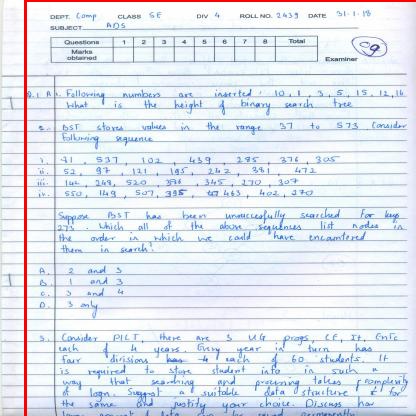 DEPT. Comp CLASS SE DIV 4 ROLL NO. 2439 DATE 31-1-18
SUBJECT ADS
Questions 1 2 3 4 5 6 7 8 Total
Marks obtained
Examiner
Q.1 A. 1. Following numbers are inserted: 10, 1, 3, 5, 15, 12, 16
What is the height of binary search tree
2. BST stores values in the range 37 to 573 Consider
following sequence
i. 81, 537, 102, 439, 285, 376, 305
ii. 52, 97, 121, 195, 242, 381, 472
iii. 142, 248, 520, 386, 345, 270, 307
iv. 550, 149, 507, 395, 463, 402, 270
Suppose BST has been unsuccessfully searched for key
273. Which all of the above sequences list nodes in
the order in which we could have encountered
them in search?
A. 2 and 3
B. 1 and 3
C. 3 and 4
D. 3 only
3. Consider PICT, there are 3 UG progs, CE, IT, EnTC
each of 4 years. Every year in turn has
four divisions each of 60 students. It
is required to store student info in such a
way that searching and processing takes complexity
of logn. Suggest a suitable data structure for
the same and justify your choice. Discuss how